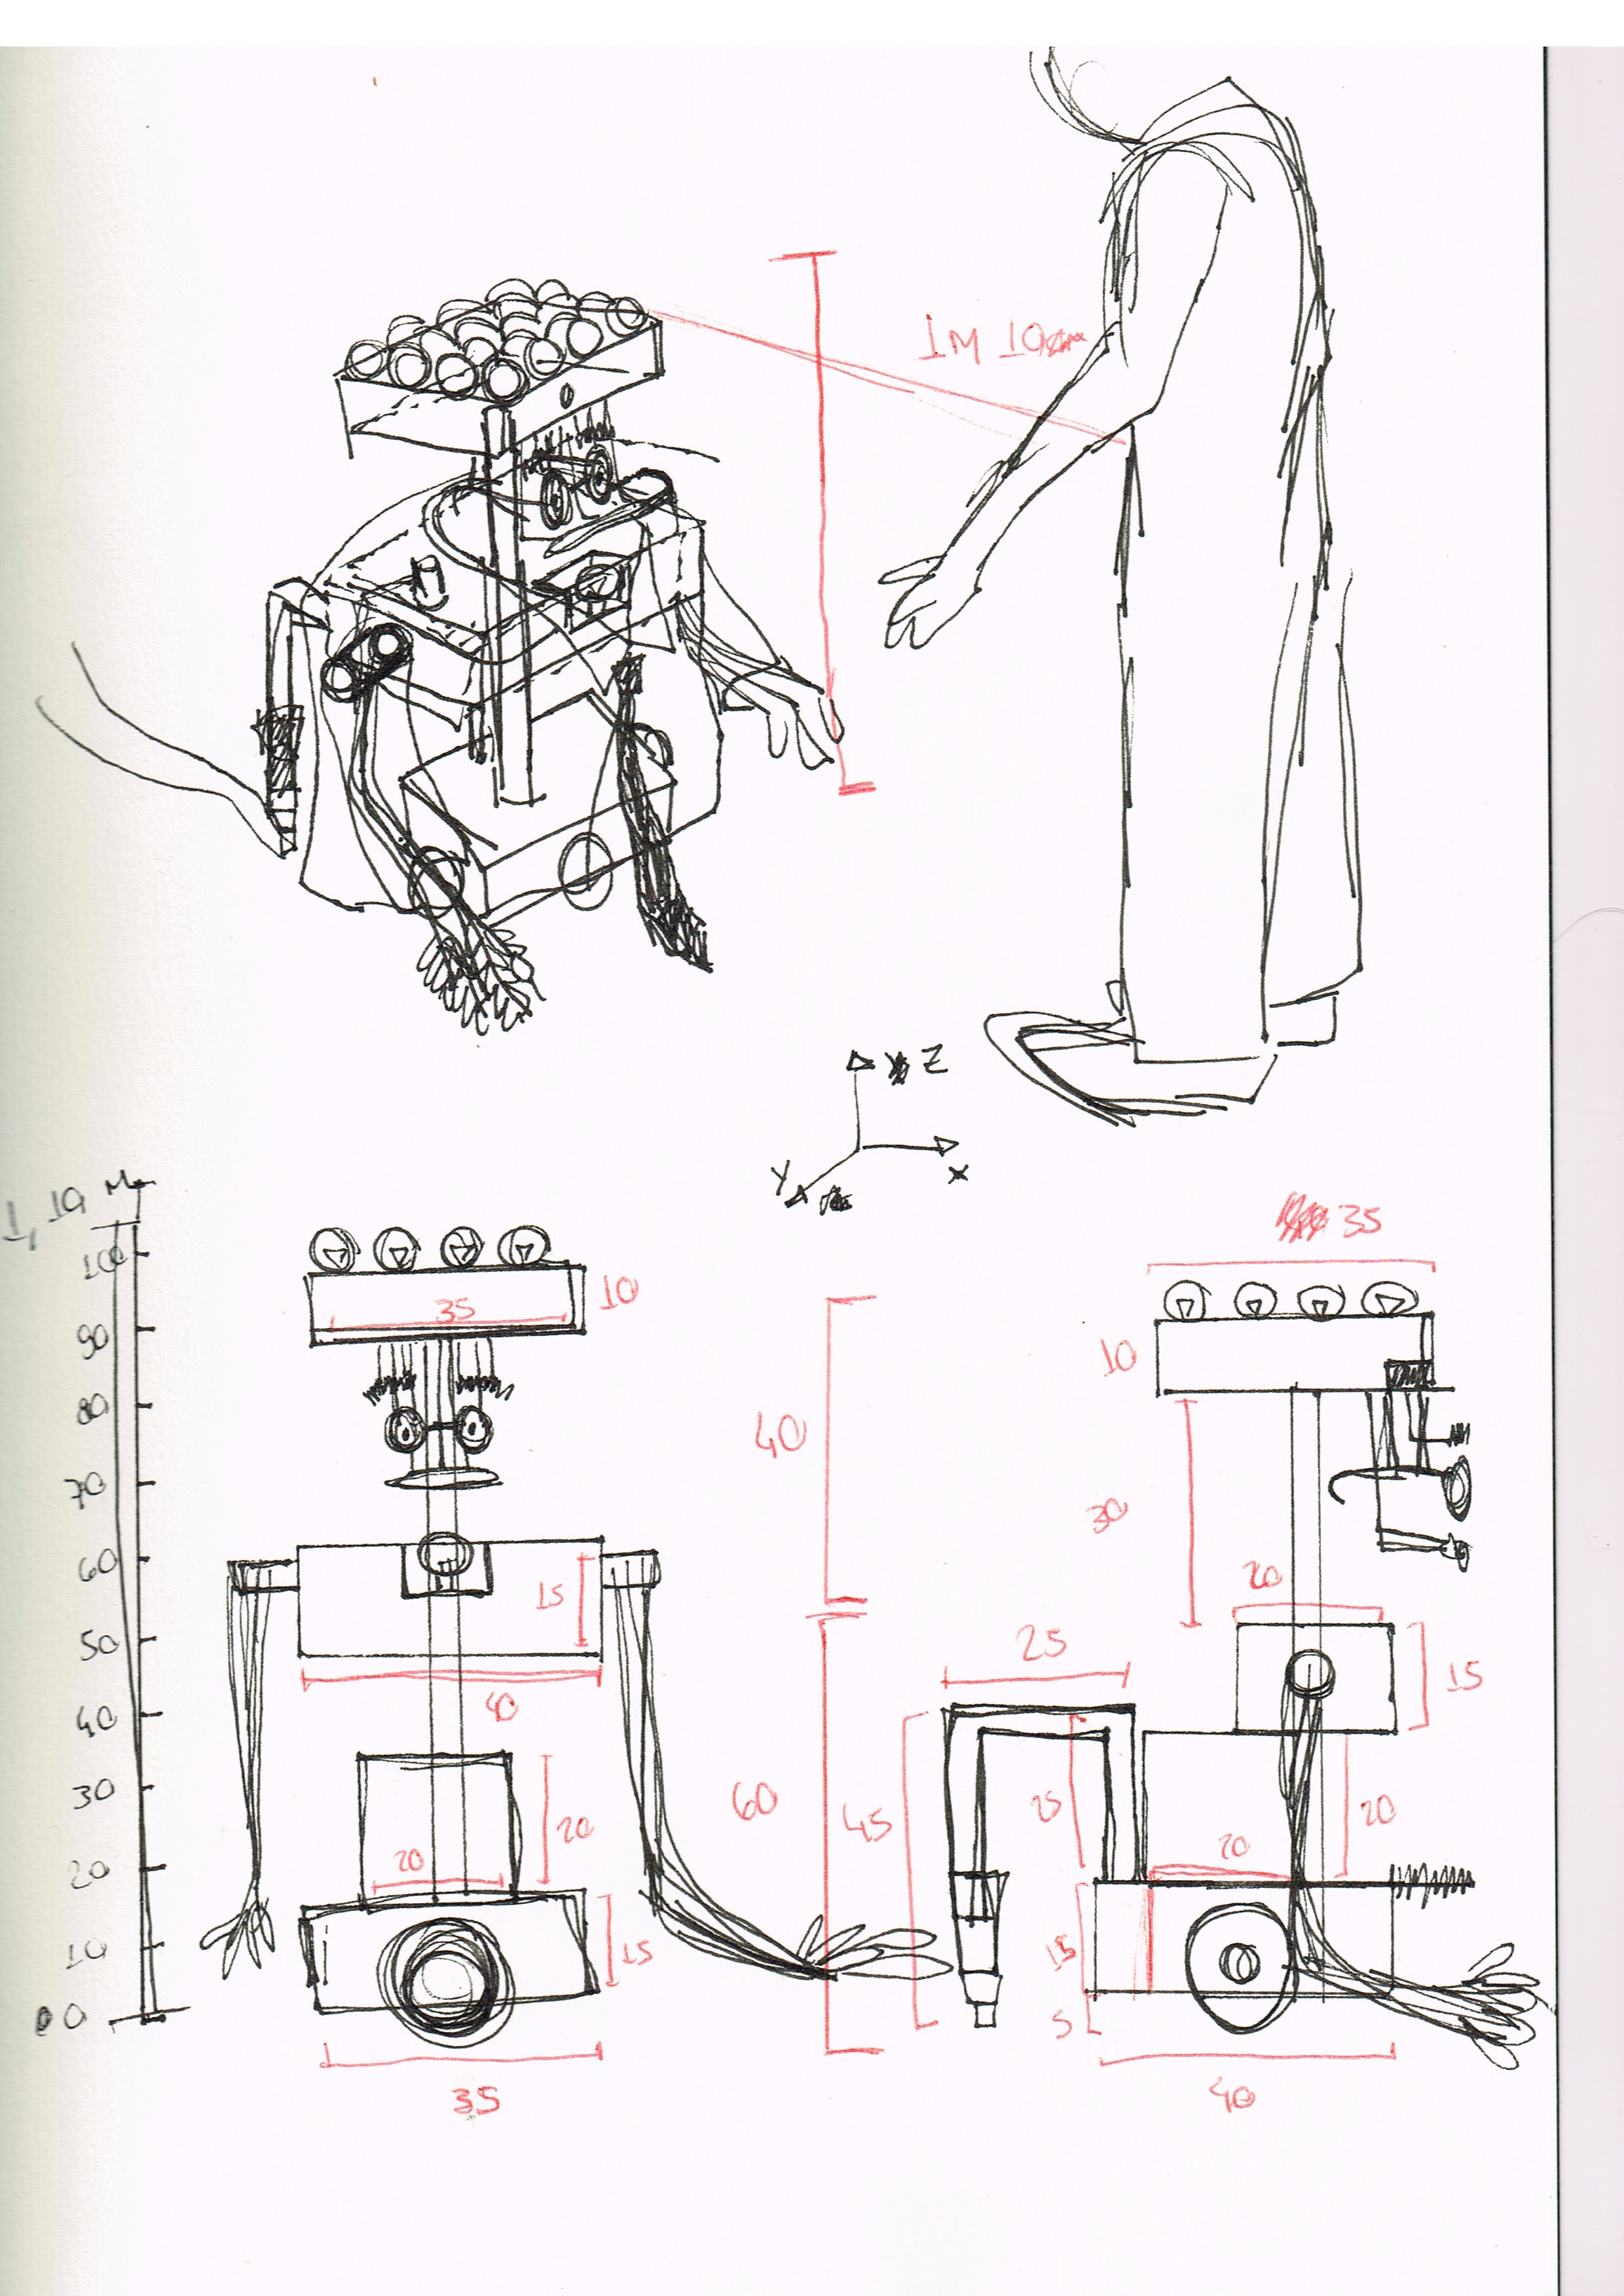 1M 10
Z
Y
X
1,10 M
100
90
80
70
60
50
40
30
20
10
0
35
10
15
40
20
20
15
35
40
60
35
10
30
20
15
25
45
25
20
20
15
5
40